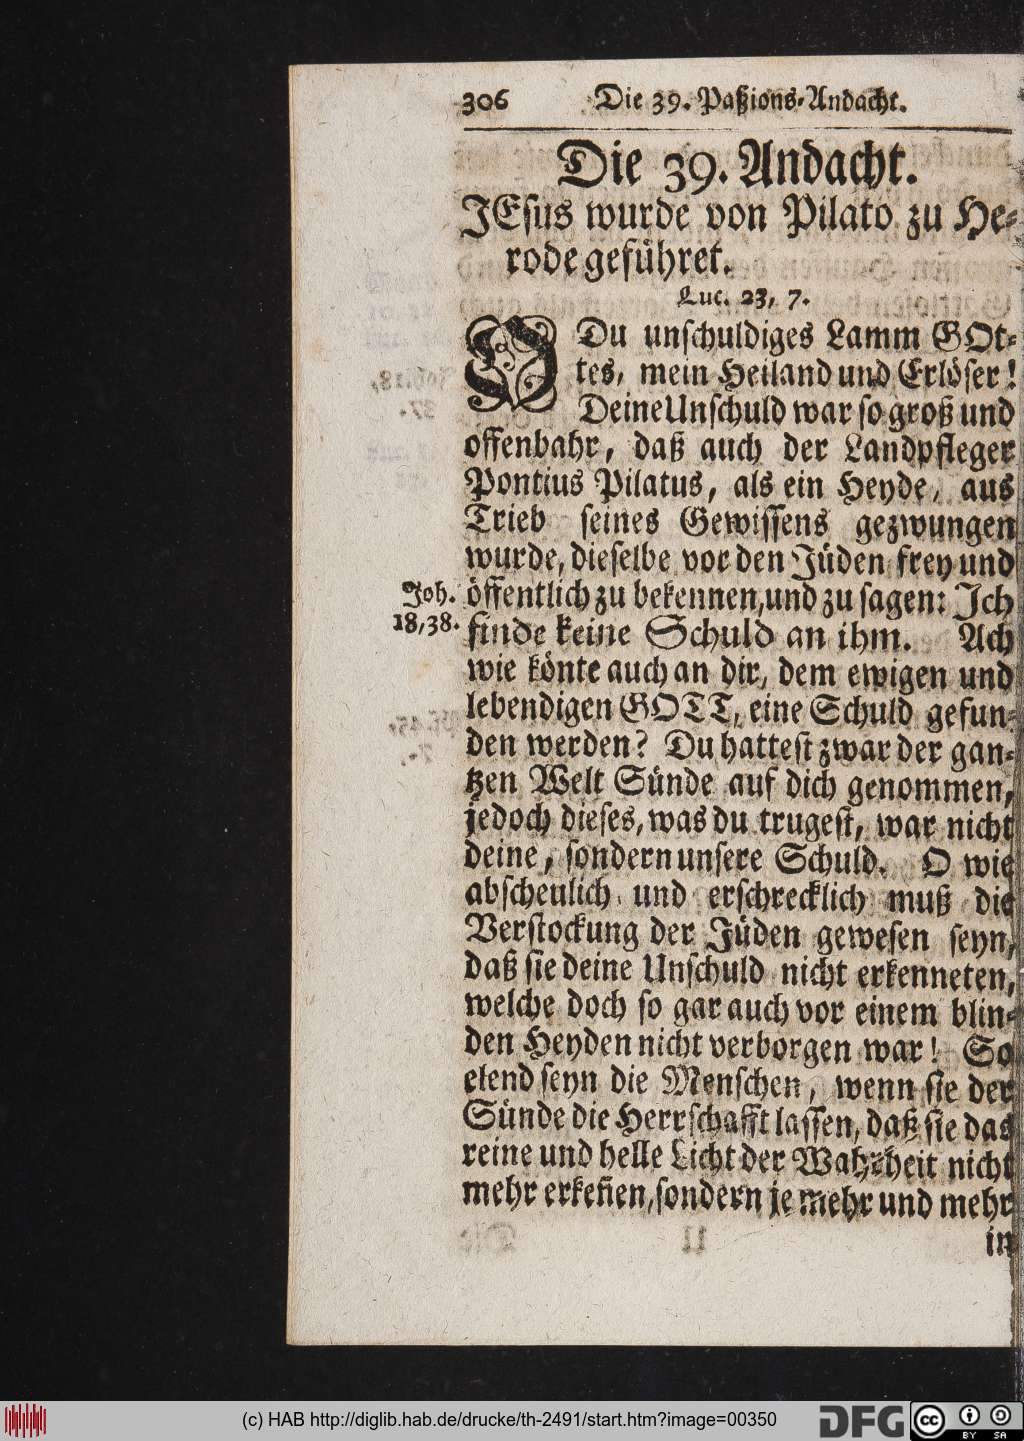 306 Die 39. Paßions-Andacht.
Die 39. Andacht.
JEsus wurde von Pilato zu He-
rode geführet.
Luc. 23, 7.
O Du unschuldiges Lamm GOt-
tes, mein Heiland und Erlöser!
Deine Unschuld war so groß und
offenbahr, daß auch der Landpfleger
Pontius Pilatus, als ein Heyde, aus
Trieb seines Gewissens gezwungen
wurde, dieselbe vor den Jüden frey und
Joh. öffentlich zu bekennen, und zu sagen: Ich
18,38. finde keine Schuld an ihm. Ach
wie könte auch an dir, dem ewigen und
lebendigen GOTT, eine Schuld gefun-
den werden? Du hattest zwar der gan-
tzen Welt Sünde auf dich genommen,
jedoch dieses, was du trugest, war nicht
deine, sondern unsere Schuld. O wie
abscheulich und erschrecklich muß die
Verstockung der Jüden gewesen seyn,
daß sie deine Unschuld nicht erkenneten,
welche doch so gar auch vor einem blin-
den Heyden nicht verborgen war! So
elend seyn die Menschen, wenn sie der
Sünde die Herrschafft lassen, daß sie das
reine und helle Licht der Wahrheit nicht
mehr erkeñen, sondern je mehr und mehr
in
(c) HAB http://diglib.hab.de/drucke/th-2491/start.htm?image=00350
DFG
cc
BY SA